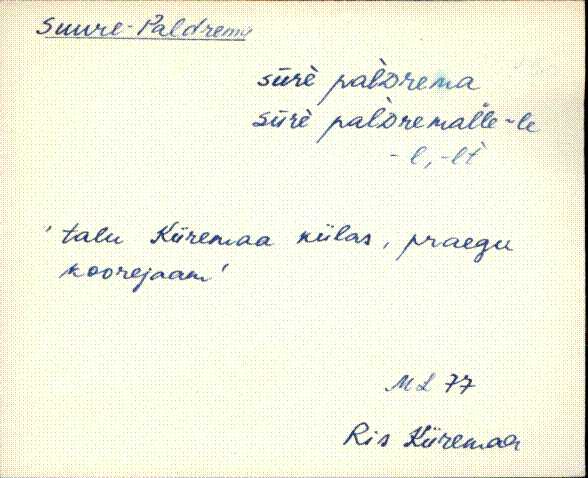 Suure-Paldrema
sūrè pal̀drema
sūrè pal̀dremalle ~ -le
-l, -lt
'talu Kiiremaa külas, praegu
koorejaam'
ML 77
Ris Kiiremaa